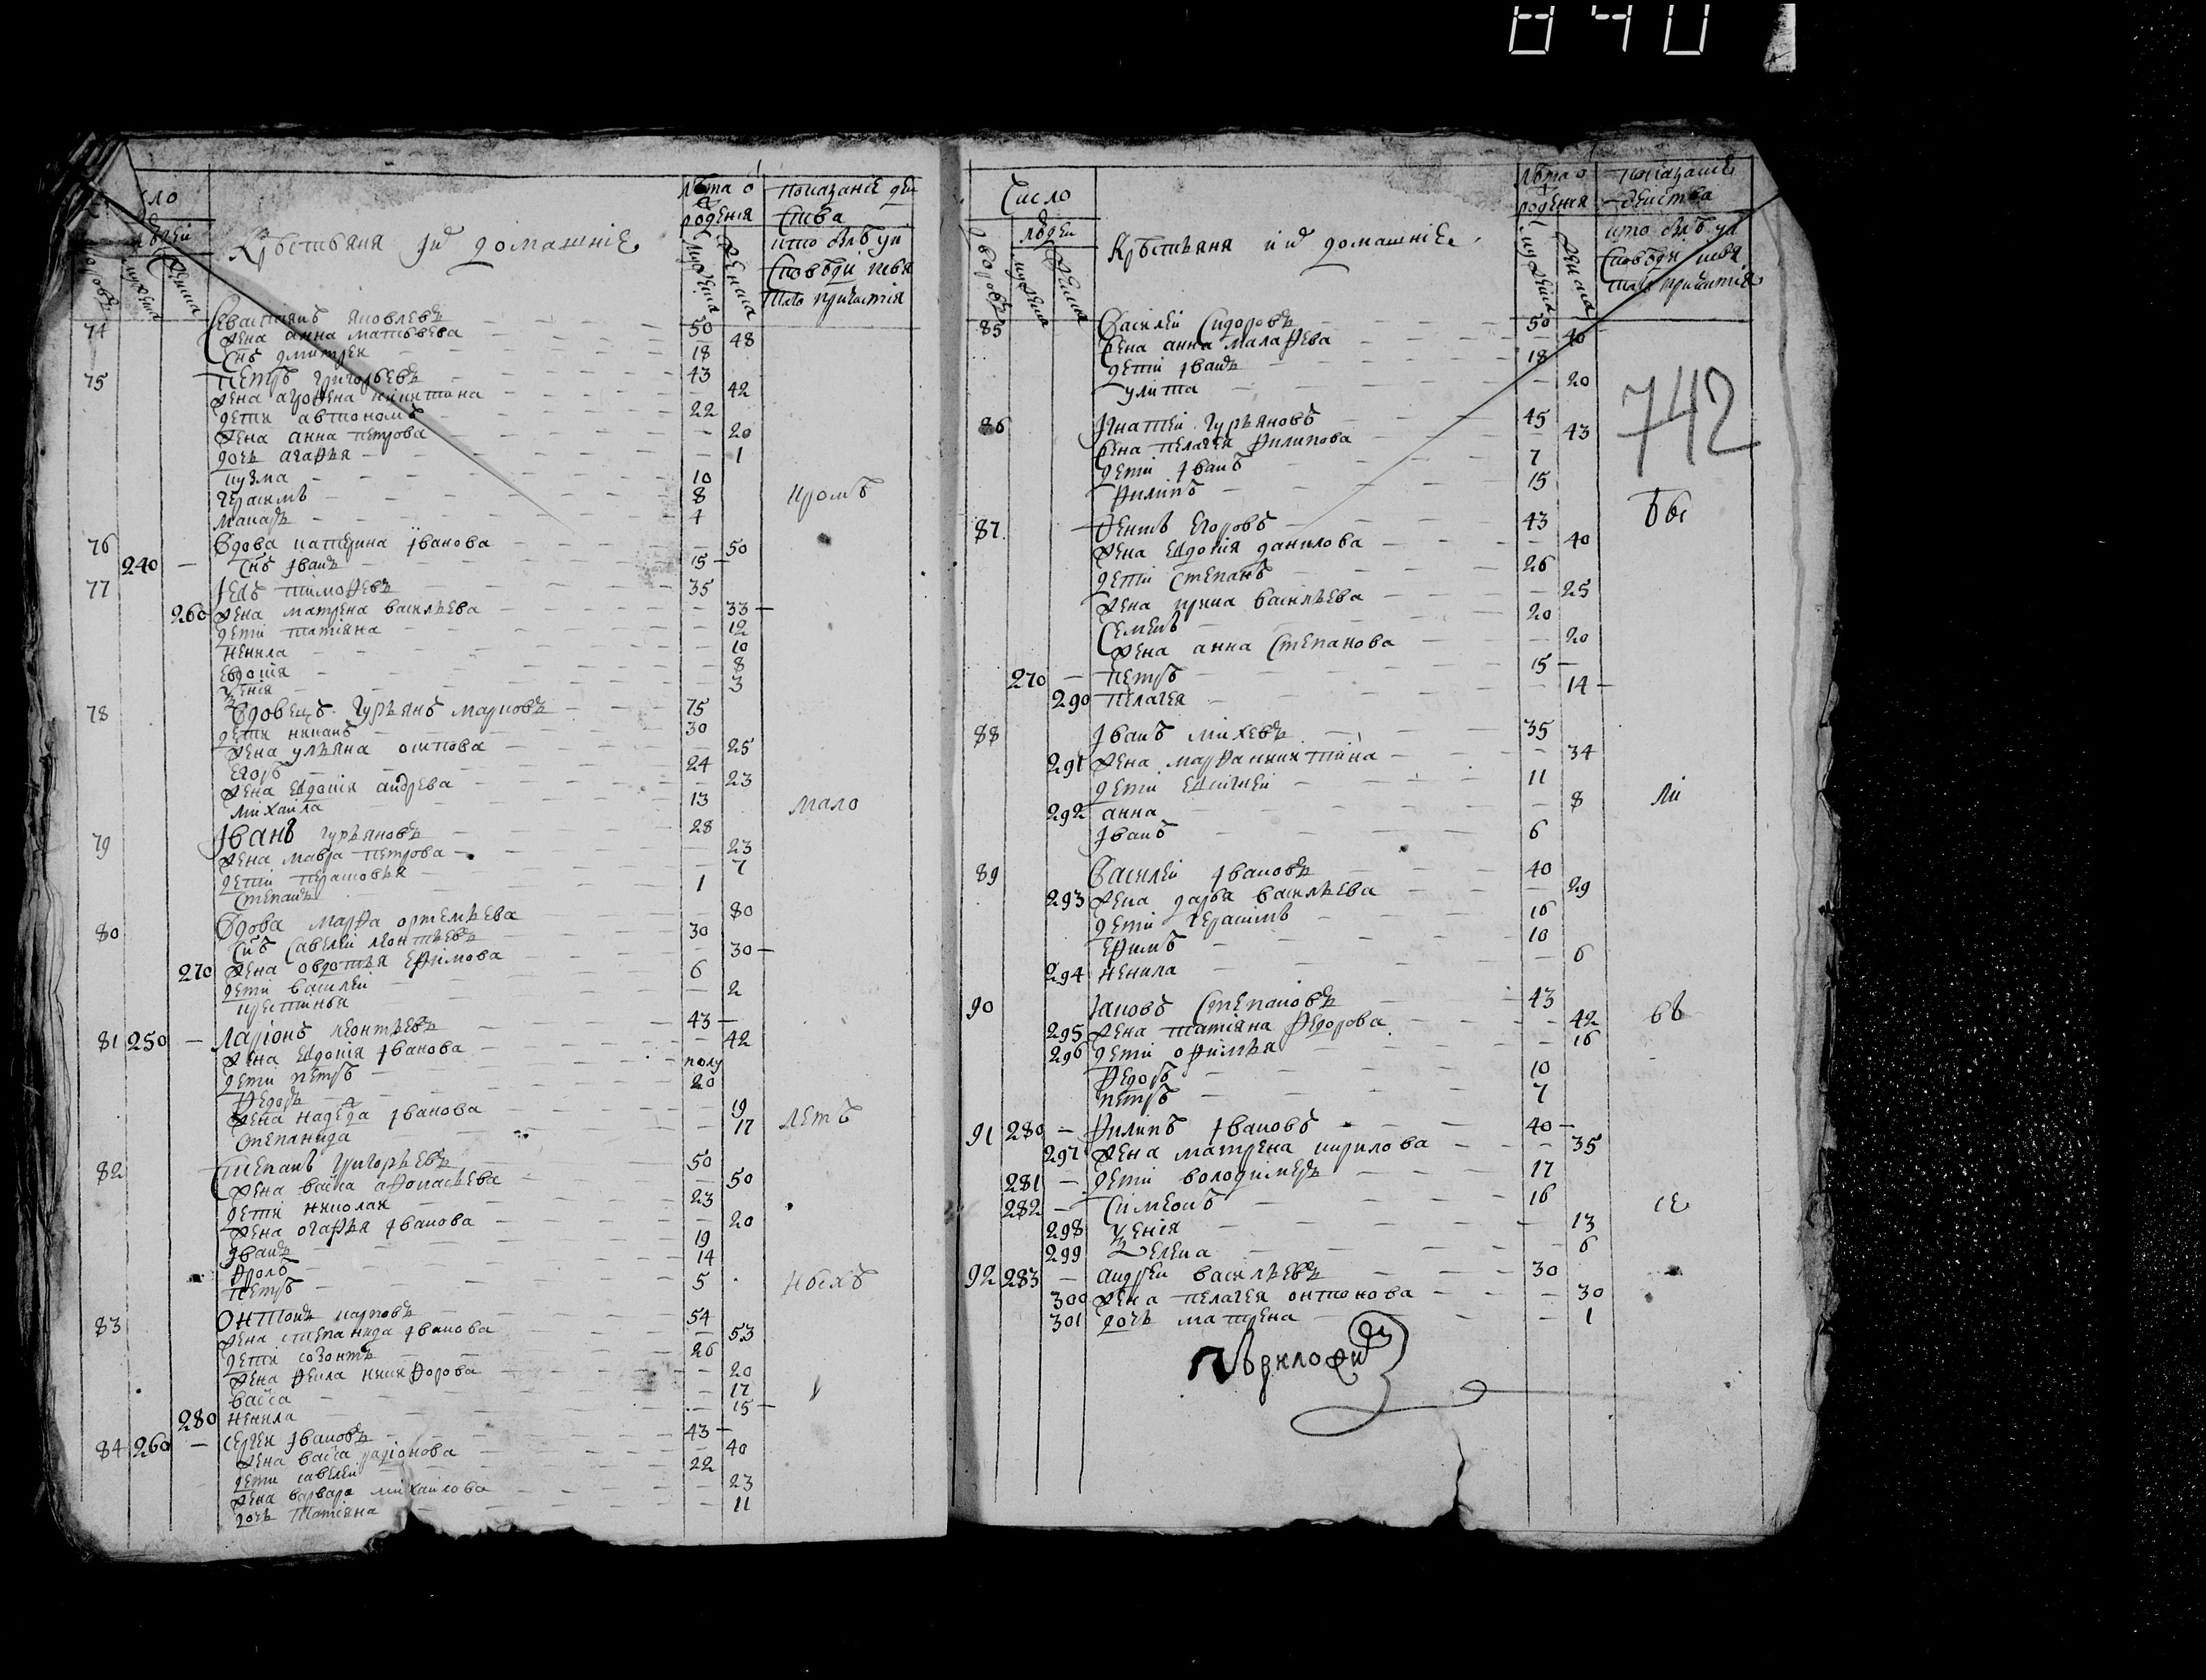 840
Число
людей
Крѣстьяня ихъ домашние
лѣта о рожения
показание действа
кто былъ у исповѣди и свя таго причастия
74 Севастиянъ яковлевъ 50
жена анна матвѣева 48
снъ дмитреи 18
75 Петръ григорьевъ 43
жена агрофена никитина 42
дети автономъ 22
жена анна петрова 20
дочь агафья 1
кузма 10
герасимъ 8 кромъ
макаръ 4
76 Вдова катерина иванова 50
240 снъ иванъ 15
77 тимофевъ 35
260 жена матрена васильева 33
дети татияна 12
ненила 10
евдокия 8
ксения 3
78 Вдовецъ гурьянъ марковъ 75
дети 30
жена ульяна осипова 25
егоръ 24
жена евдокия андрева 23
михаила 13 мало
79 Иванъ гурьяновъ 28
жена мавра петрова 23
дети парасковья 7
степанъ 1
80 Вдова марфа ортемьева 80
снъ савелеи леонтьевъ 30
270 жена овдотья ефимова 30
дети василеи 6
крестинья 2
81 250 Ларионъ леонтьевъ 43
жена евдокия иванова 42
дети петръ полу
федоръ 20
жена надежда иванова 19
степанида 17 летъ
82 Степанъ григорьевъ 50
жена васса афонасьева 50
дети николая 23
жена огафья иванова 20
иванъ 19
фролъ 14
петръ 5 нысхъ
83 Онтонъ карповъ 54
жена степанида иванова 53
дети созонтъ 26
жена фекла никифорова 20
васса 17
280 ненила 15
84 260 сергеи ивановъ 43
жена васса родионова 40
дети савелеи 22
жена варвара михаилова 23
дочь татияна 11
Число
людей
Крѣстьяня ихъ домашние
лѣта о рожения
показание действа
кто былъ у исповѣди и свя таго причастия
85 Василеи Сидоровъ 50
жена анна малафева 40
дети иванъ 18
улита 20
742
86 Игнатеи гурьяновъ 45
жена пелагея филипова 43
дети иванъ 7
филипъ 15
бы
87 Фектъ егоровъ 43
жена евдокия данилова 40
дети степанъ 26
жена ирина васильева 25
Семенъ 20
жена анна степанова 20
270 петръ 15
290 пелагея 14
88 Иванъ михевъ 35
291 жена марфа никитина 34
дети евсигнеи 11
292 анна 8 ли
иванъ 6
89 Василеи ивановъ 40
293 жена дарья васильева 29
дети герасимъ 16
ефимъ 10
294 ненила 6
90 Іаковъ степановъ 43 вв
295 жена татияна федорова 42
296 дети офимья 16
федоръ 10
петръ 7
91 280 Филипъ ивановъ 40
297 жена матрена кирилова 35
281 дети володимеръ 17
282 Симеонъ 16 се
298 ксения 13
299 елена 6
92 283 андреи васильевъ 30
300 жена пелагея онтонова 30
301 дочь матрена 1